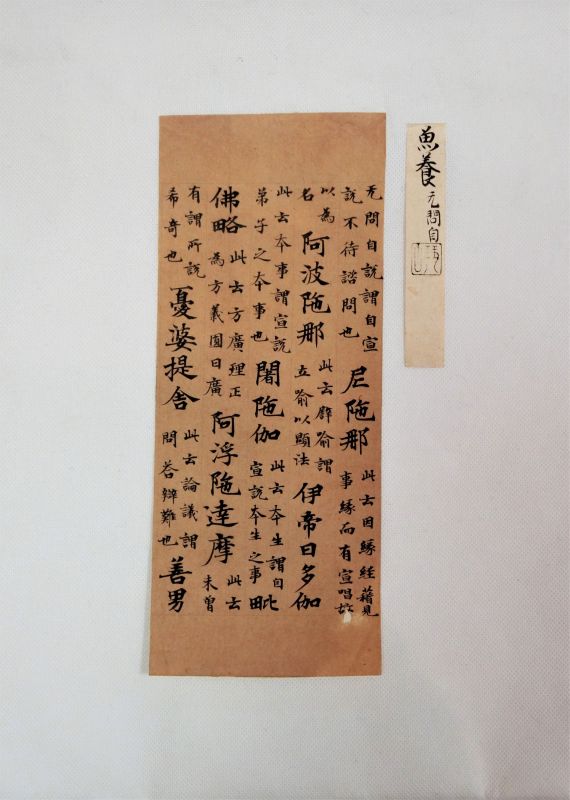 无問自説謂自宣
説不待諮問也
尼陁那
此云因縁経藉見
事縁而有宣唱故
以為
名
阿波陁那
此云辟喻謂
立喻以顯法
伊帝曰多伽
此云夲事謂宣説
弟子之夲事也
闍陁伽
此云夲生謂自
宣説夲生之事
毗
佛略
此云方廣理正
為方義圓曰廣
阿浮陁達摩
此云
未曽
有謂所説
希奇也
憂婆提舍
此云論議謂
問荅辯難也
善男
魚養 无問自